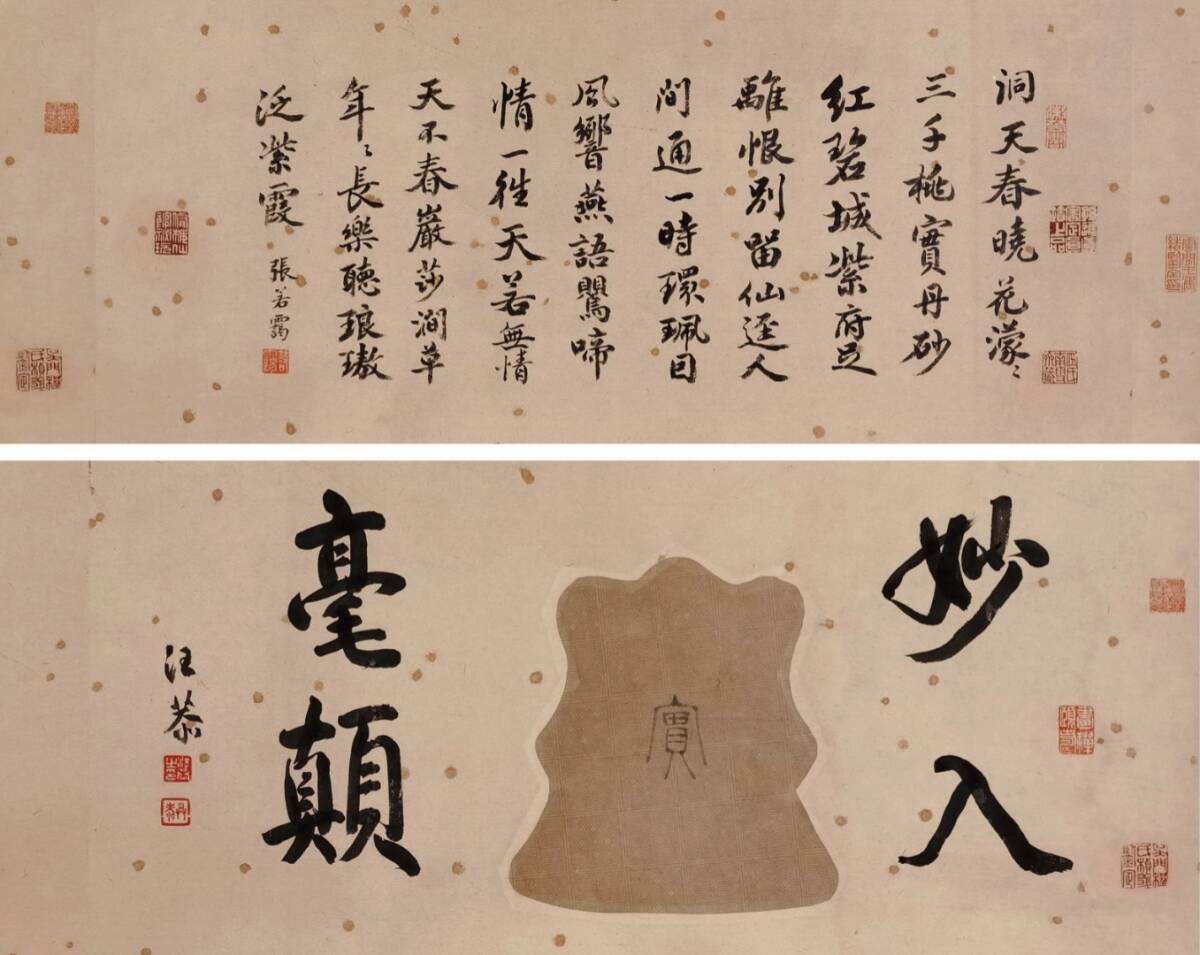 洞天春曉花濛〻
三千桃實丹砂
紅碧城紫府足
離恨別留仙逕人
間通一時環珮回
風響燕語鸎啼
情一往天若無情
天不春巖莎澗草
年〻長樂聽琅璈
泛紫霞
張若靄
妙入
實
毫顛
汪恭